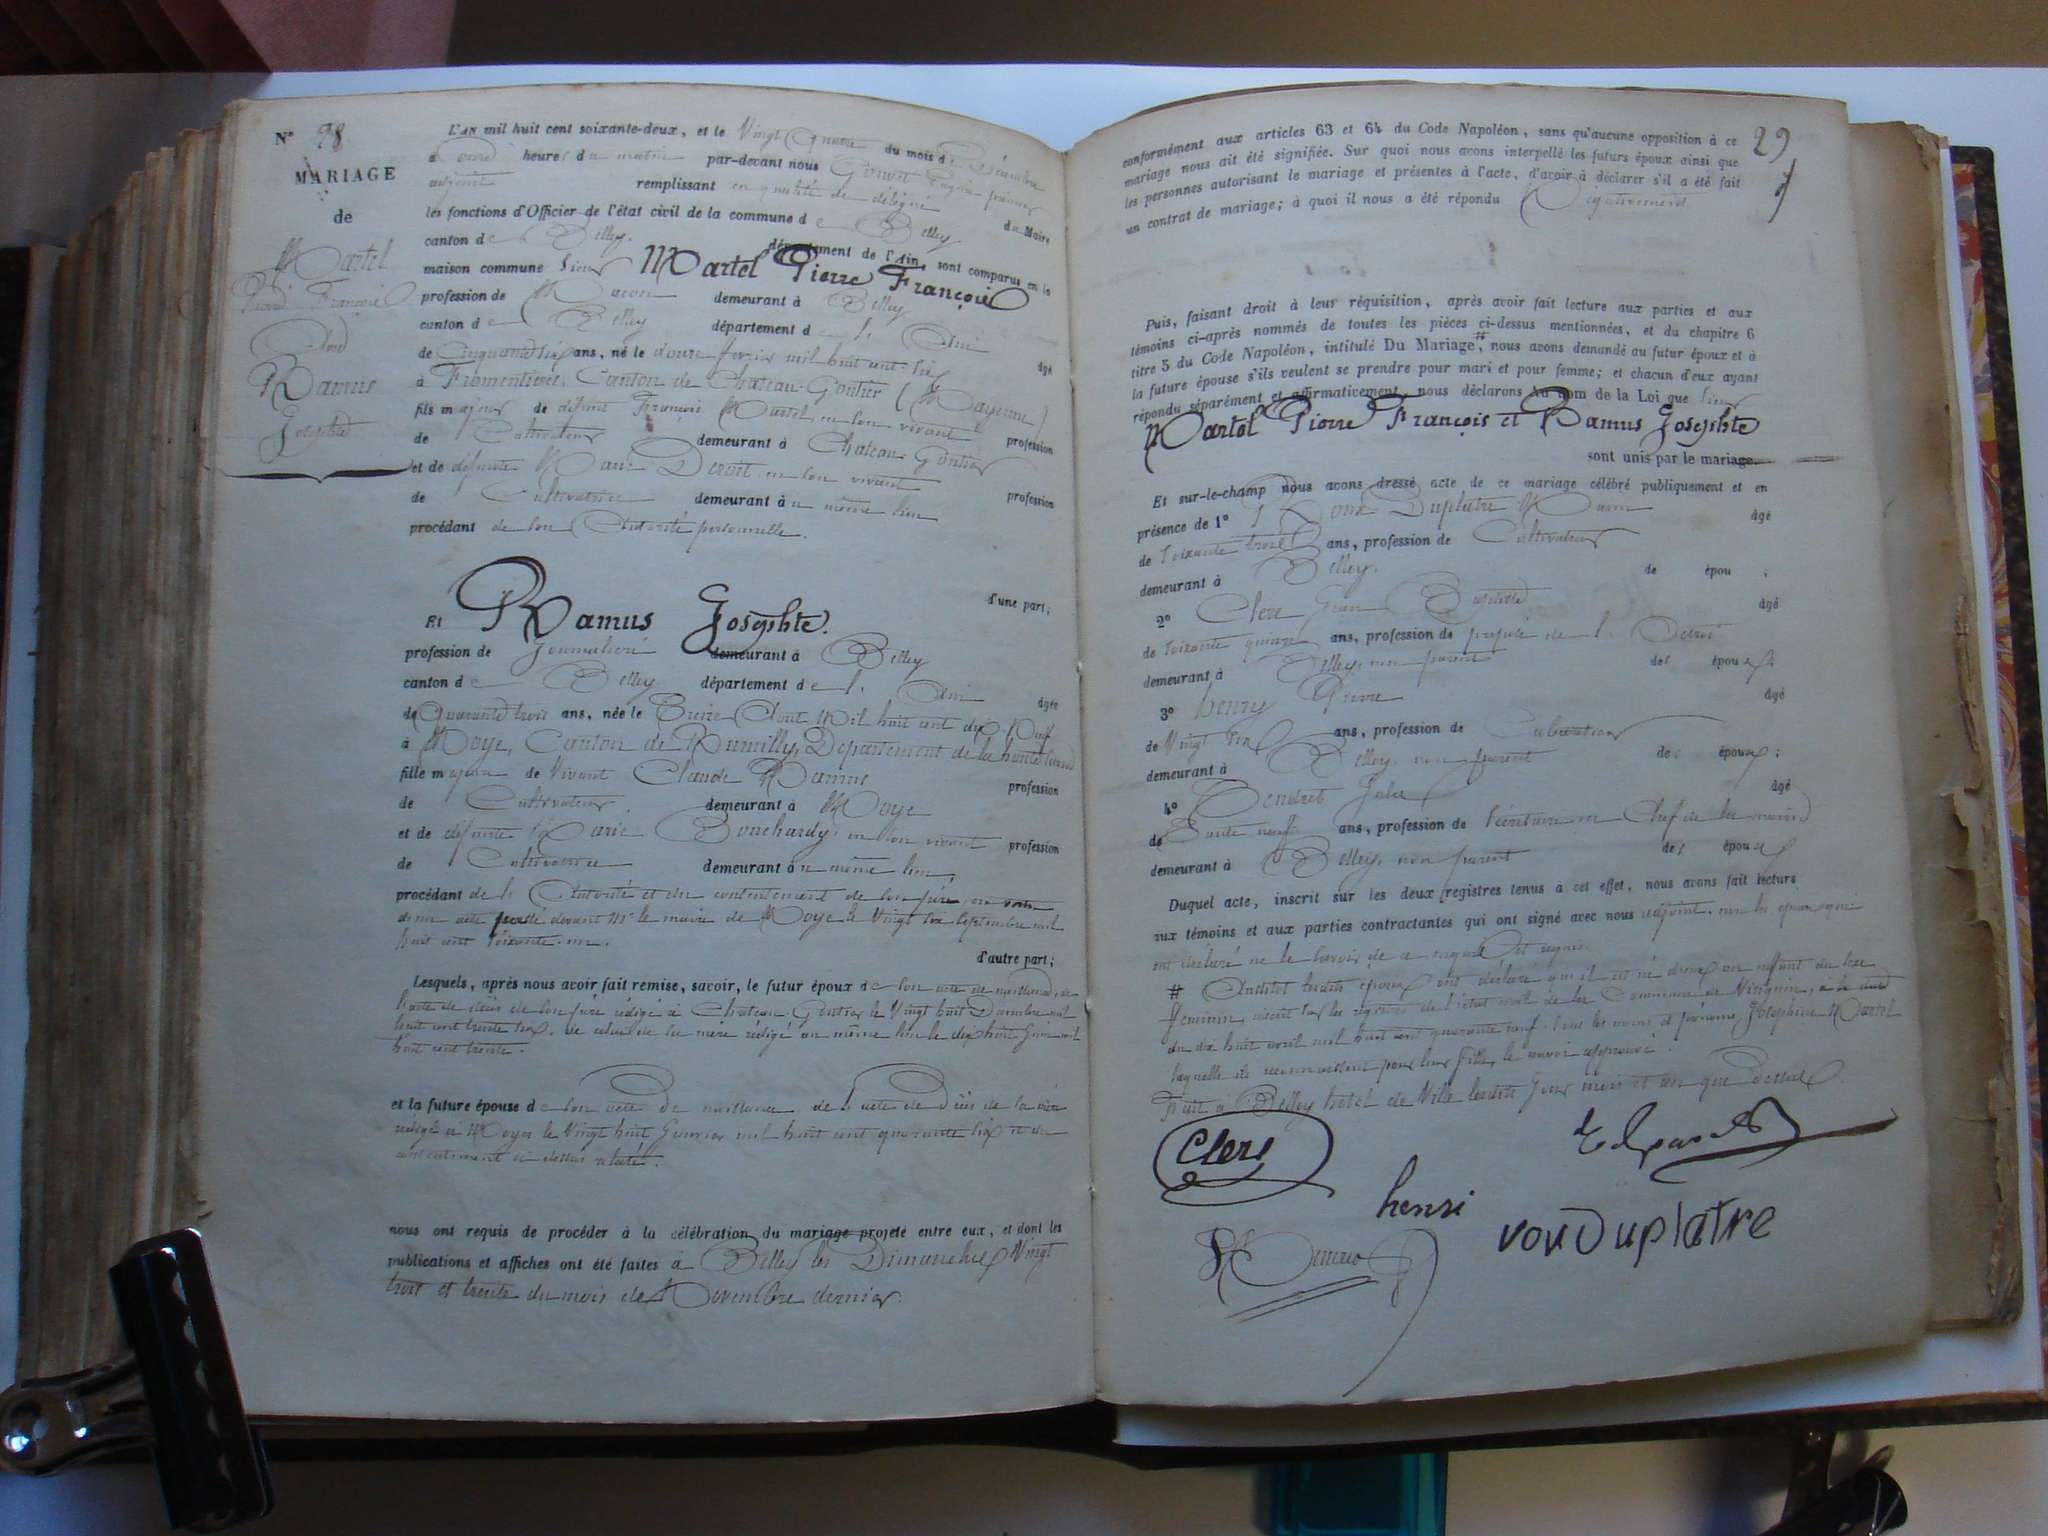 N° 28
MARIAGE
de
Martel
Pierre François
et
Ramus
Josephte
L'AN mil huit cent soixante-deux, et le Vingt quatre du mois de Décembre
à heures du matin par-devant nous premier
adjoint remplissant en qualité de délégué du Maire
les fonctions d'Officier de l'état civil de la commune de Belley
canton de Belley. département de l'Ain, sont comparus en la
maison commune sieur Martel Pierre François
profession de Maçon demeurant à Belley
canton de Belley département de l' Ain âgé
de Cinquante six ans, né le douze février mil huit cent six
à Fromentières, Canton de Chateau-Gontier (Mayenne)
fils majeur de défunt François Martel, en son vivant profession
de Cultivateur demeurant à Chateau-Gontier
et de défunte Marie en son vivant profession
de Cultivatrice demeurant au même lieu
procédant de son Autorité personnelle.
d'une part;
Et Ramus Josephte.
profession de Journalière demeurant à Belley
canton de Belley département de l' Ain âgée
de Quarante trois ans, née le Treize Aout Mil huit cent dix Neuf
à Moye, Canton de Rumilly, Département de la haute Savoie
fille majeure de Vivant Claude Ramus profession
de Cultivateur, demeurant à Moye
et de défunte Marie Bouchardy, en son vivant profession
de Cultivatrice demeurant au même lieu,
procédant de l' Autorité et du consentement de son père, en vertu
d'un acte passé devant Mr le maire de Moye le Vingt six Septembre mil
huit cent soixante-un.
d'autre part;
Lesquels, après nous avoir fait remise, savoir, le futur époux de son acte de naissance, de
l'acte de décès de son père rédigé à Chateau-Gontier le Vingt huit Décembre mil
huit cent trente six, de celui de sa mère rédigé au même lieu le dix huit Juin mil
huit cent trente.
et la future épouse de son acte de naissance de l'acte de décès de sa mère
rédigé à Moye le Vingt huit Janvier mil huit cent quarante six et du
consentement ci-dessus relaté.
nous ont requis de procéder à la célébration du mariage projeté entre eux, et dont les
publications et affiches ont été faites à Belley les Dimanches Vingt
trois et trente du mois de Novembre dernier.
29
conformément aux articles 63 et 64 du Code Napoléon, sans qu'aucune opposition à ce
mariage nous ait été signifiée. Sur quoi nous avons interpellé les futurs époux ainsi que
les personnes autorisant le mariage et présentes à l'acte, d'avoir à déclarer s'il a été fait
un contrat de mariage; à quoi il nous a été répondu Négativement
Puis, faisant droit à leur réquisition, après avoir fait lecture aux parties et aux
témoins ci-après nommés de toutes les pièces ci-dessus mentionnées, et du chapitre 6
titre 5 du Code Napoléon, intitulé Du Mariage,# nous avons demandé au futur époux et à
la future épouse s'ils veulent se prendre pour mari et pour femme; et chacun d'eux ayant
répondu séparément et affirmativement, nous déclarons au nom de la Loi que sieur
Martel Pierre François et Ramus Josephte
sont unis par le mariage.
Et sur-le-champ nous avons dressé acte de ce mariage célébré publiquement et en
présence de 1° Duplatre âgé
de soixante trois ans, profession de Cultivateur
demeurant à Belley. de épou ;
2° Clerc Jean Baptiste âgé
de soixante quinze ans, profession de préposé de l' Octroi
demeurant à Belley, non parent des époux
3° henry Pierre âgé
de Vingt six ans, profession de Cultivateur
demeurant à Belley, non parent des époux;
4° Jules âgé
de Trente neuf ans, profession de Secrétaire en Chef de la mairie
demeurant à Belley, non parent des époux
Duquel acte, inscrit sur les deux registres tenus à cet effet, nous avons fait lecture
aux témoins et aux parties contractantes qui ont signé avec nous adjoint, non les époux qui
ont déclaré ne le savoir de ce enquis et requis.
# Aussitot lesdits époux ont déclaré qu'il est né d'eux un enfant du sexe
féminin, inscrit sur les registres de l'état civil de la Commune de Virignin, à la date
du dix huit avril mil huit cent quarante neuf, sous les noms et prénoms Joséphine Martel
laquelle ils reconnaissent pour leur fille, le renvoi approuvé.
Fait à Belley hôtel de Ville lesdits jour mois et an que dessus.
Clerc
henri
vouDuplâtre